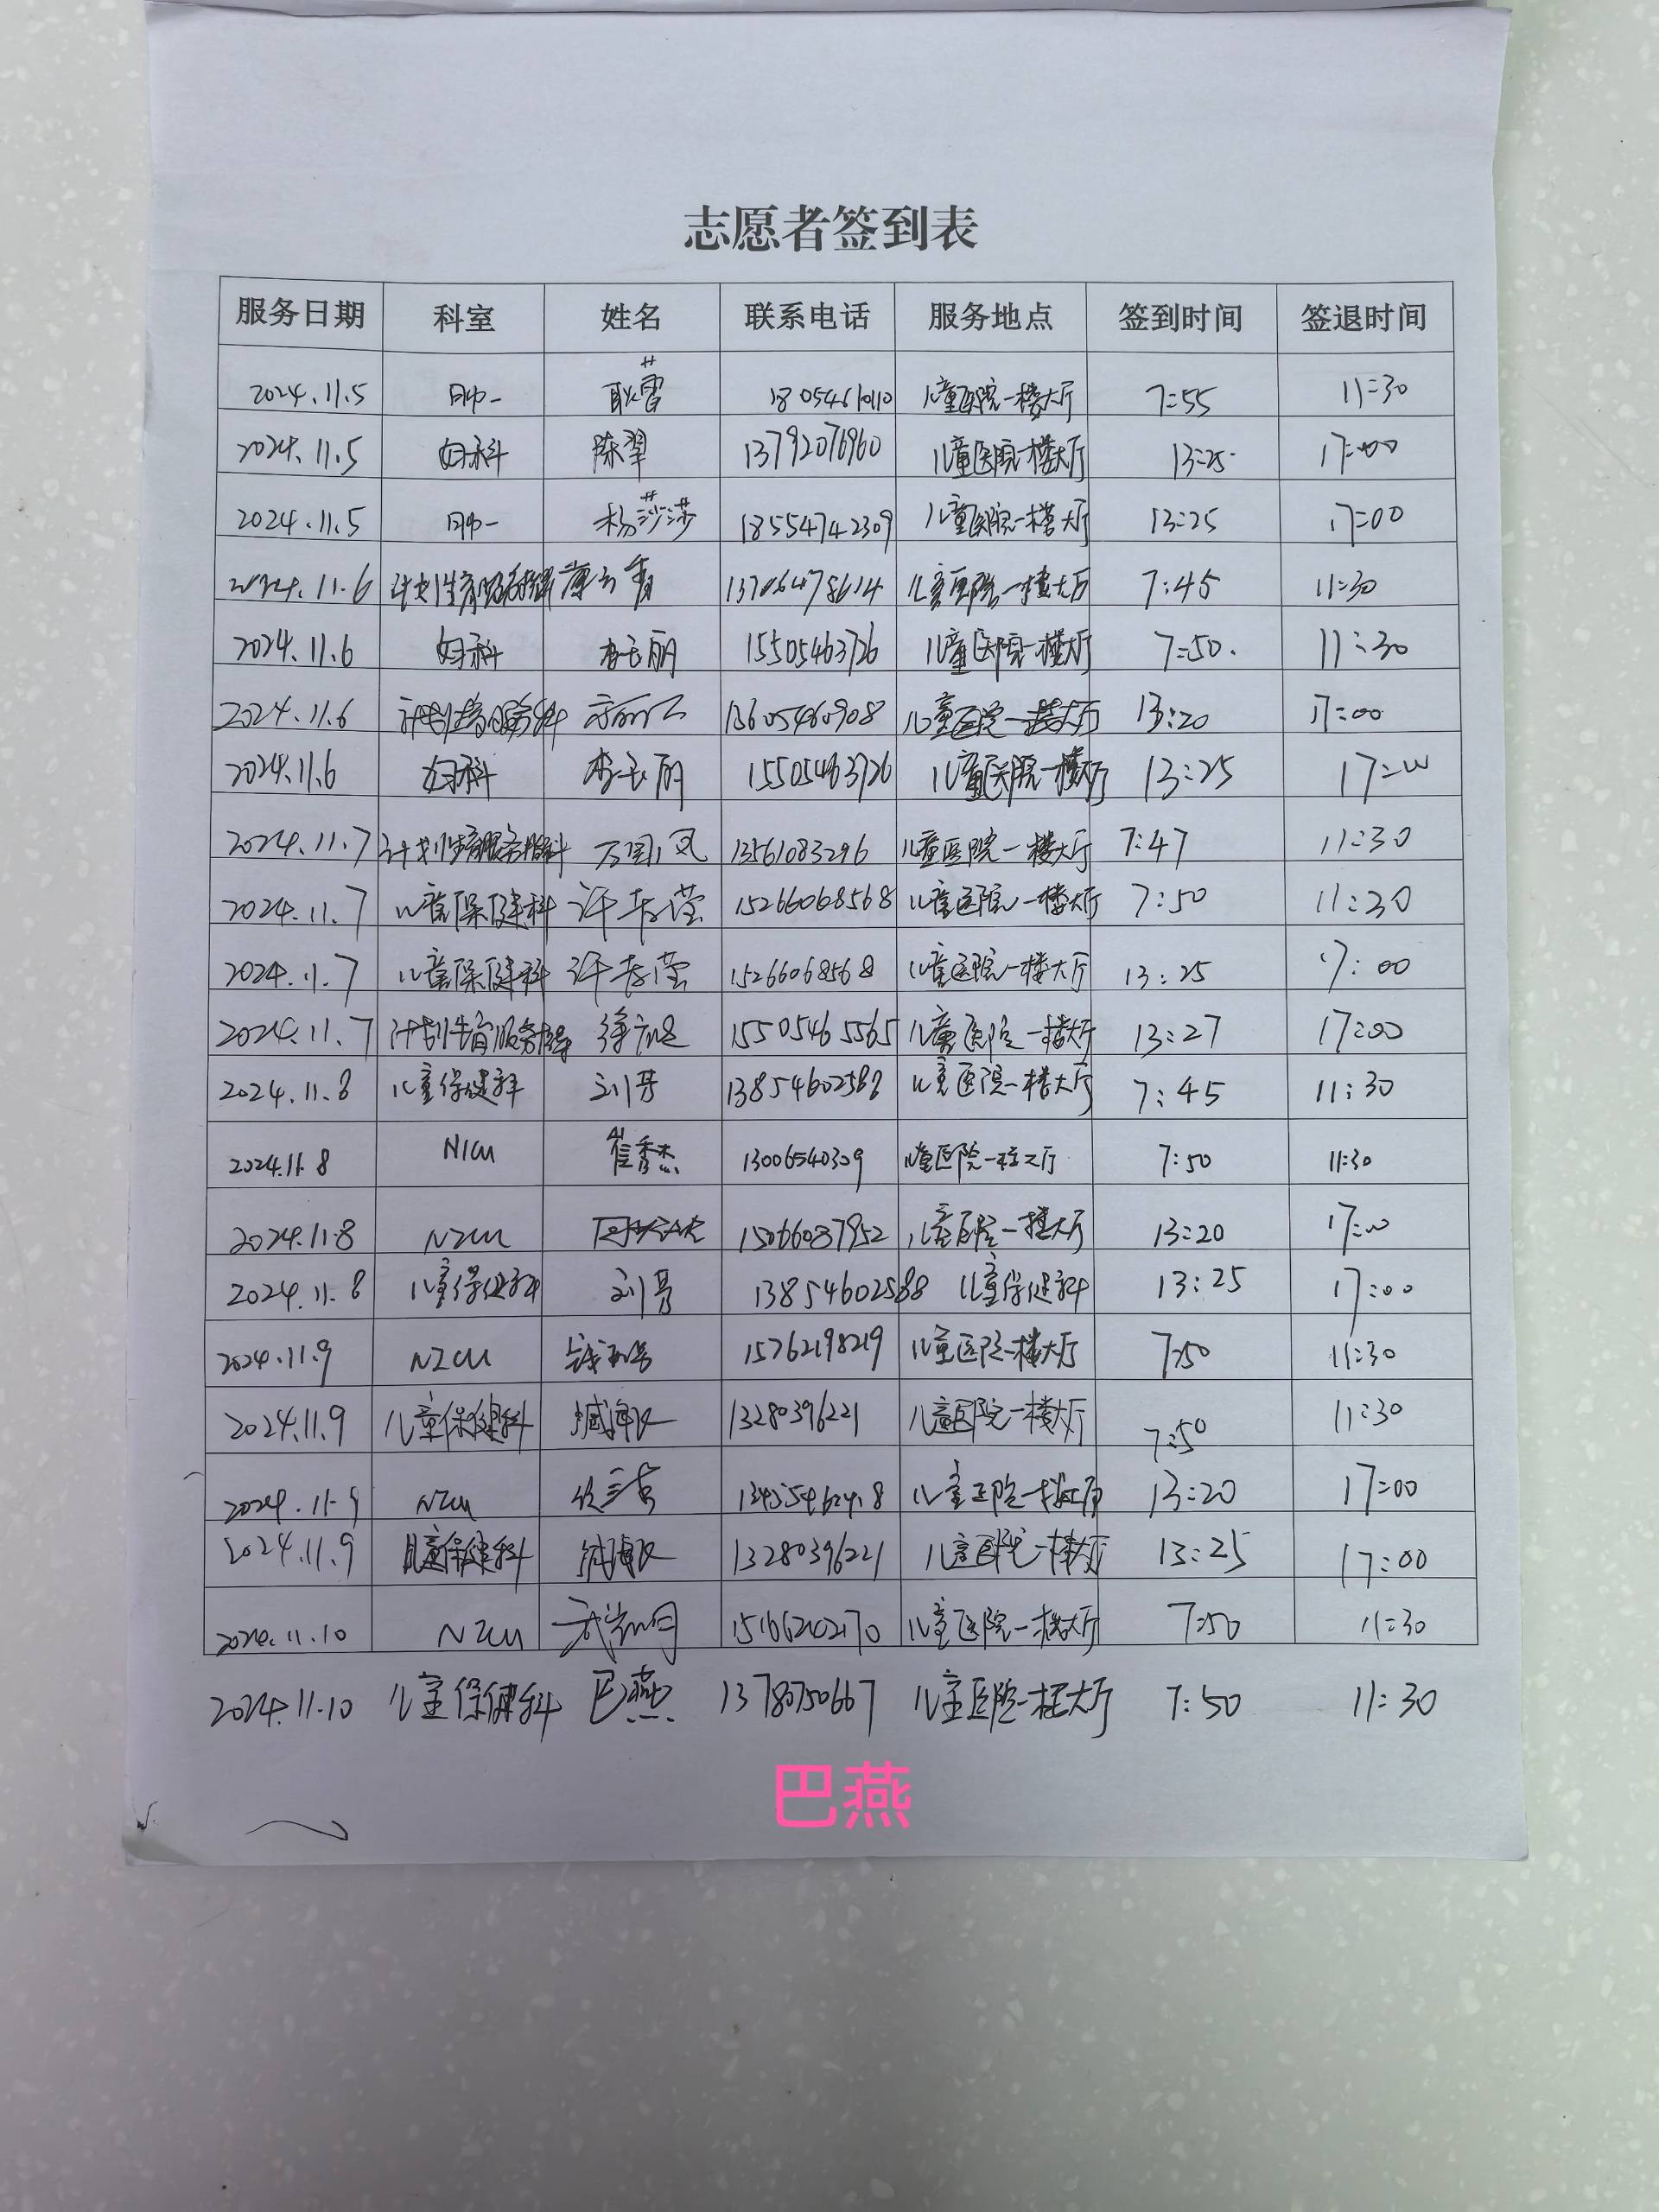 志愿者签到表
服务日期 科室 姓名 联系电话 服务地点 签到时间 签退时间
2024.11.5 耿蕾 18054610110 儿童医院一楼大厅 7:55 11:30
2024.11.5 妇科 陈翠 13792076960 儿童医院一楼大厅 13:25 17:00
2024.11.5 杨莎莎 18554742309 儿童医院一楼大厅 13:25 17:00
2024.11.6 13706478614 儿童医院一楼大厅 7:45 11:30
2024.11.6 妇科 15505463726 儿童医院一楼大厅 7:50 11:30
2024.11.6 计划生育服务科 13605460908 儿童医院一楼大厅 13:20 17:00
2024.11.6 妇科 15505463726 儿童医院一楼大厅 13:25 17:00
2024.11.7 13561083296 儿童医院一楼大厅 7:47 11:30
2024.11.7 儿童保健科 15266068568 儿童医院一楼大厅 7:50 11:30
2024.11.7 儿童保健科 15266068568 儿童医院一楼大厅 13:25 17:00
2024.11.7 15505465565 儿童医院一楼大厅 13:27 17:00
2024.11.8 儿童保健科 刘芳 13854602588 儿童医院一楼大厅 7:45 11:30
2024.11.8 NICU 崔秀杰 13006540309 儿童医院一楼大厅 7:50 11:30
2024.11.8 NICU 15066087952 儿童医院一楼大厅 13:20 17:00
2024.11.8 儿童保健科 刘芳 13854602588 儿童保健科 13:25 17:00
2024.11.9 NICU 15762198219 儿童医院一楼大厅 7:50 11:30
2024.11.9 儿童保健科 13280396221 儿童医院一楼大厅 7:50 11:30
2024.11.9 NICU 儿童医院一楼大厅 13:20 17:00
2024.11.9 儿童保健科 13280396221 儿童医院一楼大厅 13:25 17:00
2024.11.10 NICU 儿童医院一楼大厅 7:50 11:30
2024.11.10 儿童保健科 巴燕 13780750667 儿童医院一楼大厅 7:50 11:30
巴燕